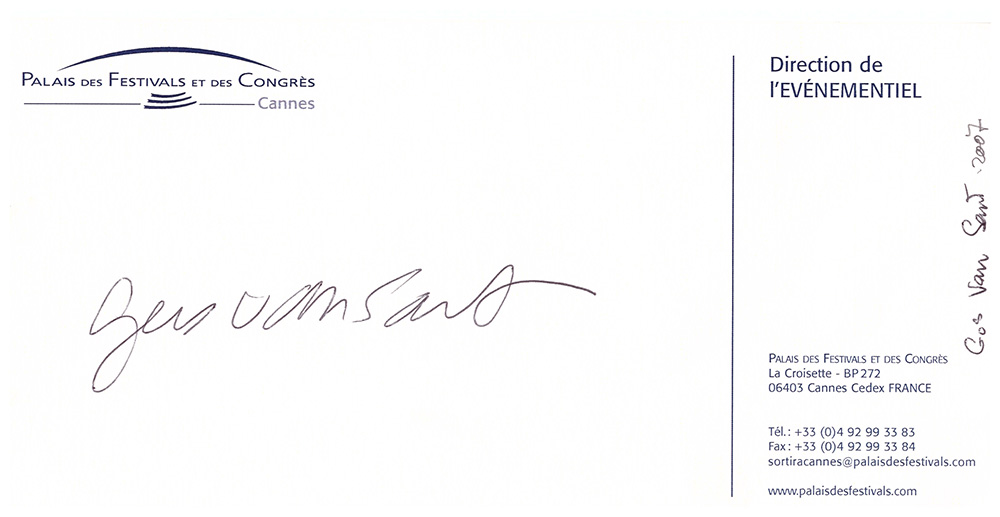 PALAIS DES FESTIVALS ET DES CONGRÈS
Cannes
Gus Van Sant
Direction de
l'EVÉNEMENTIEL
Gos Van Sant - 2007
PALAIS DES FESTIVALS ET DES CONGRÈS
La Croisette - BP 272
06403 Cannes Cedex FRANCE
Tél.: +33 (0)4 92 99 33 83
Fax: +33 (0)4 92 99 33 84
sortiracannes@palaisdesfestivals.com
www.palaisdesfestivals.com